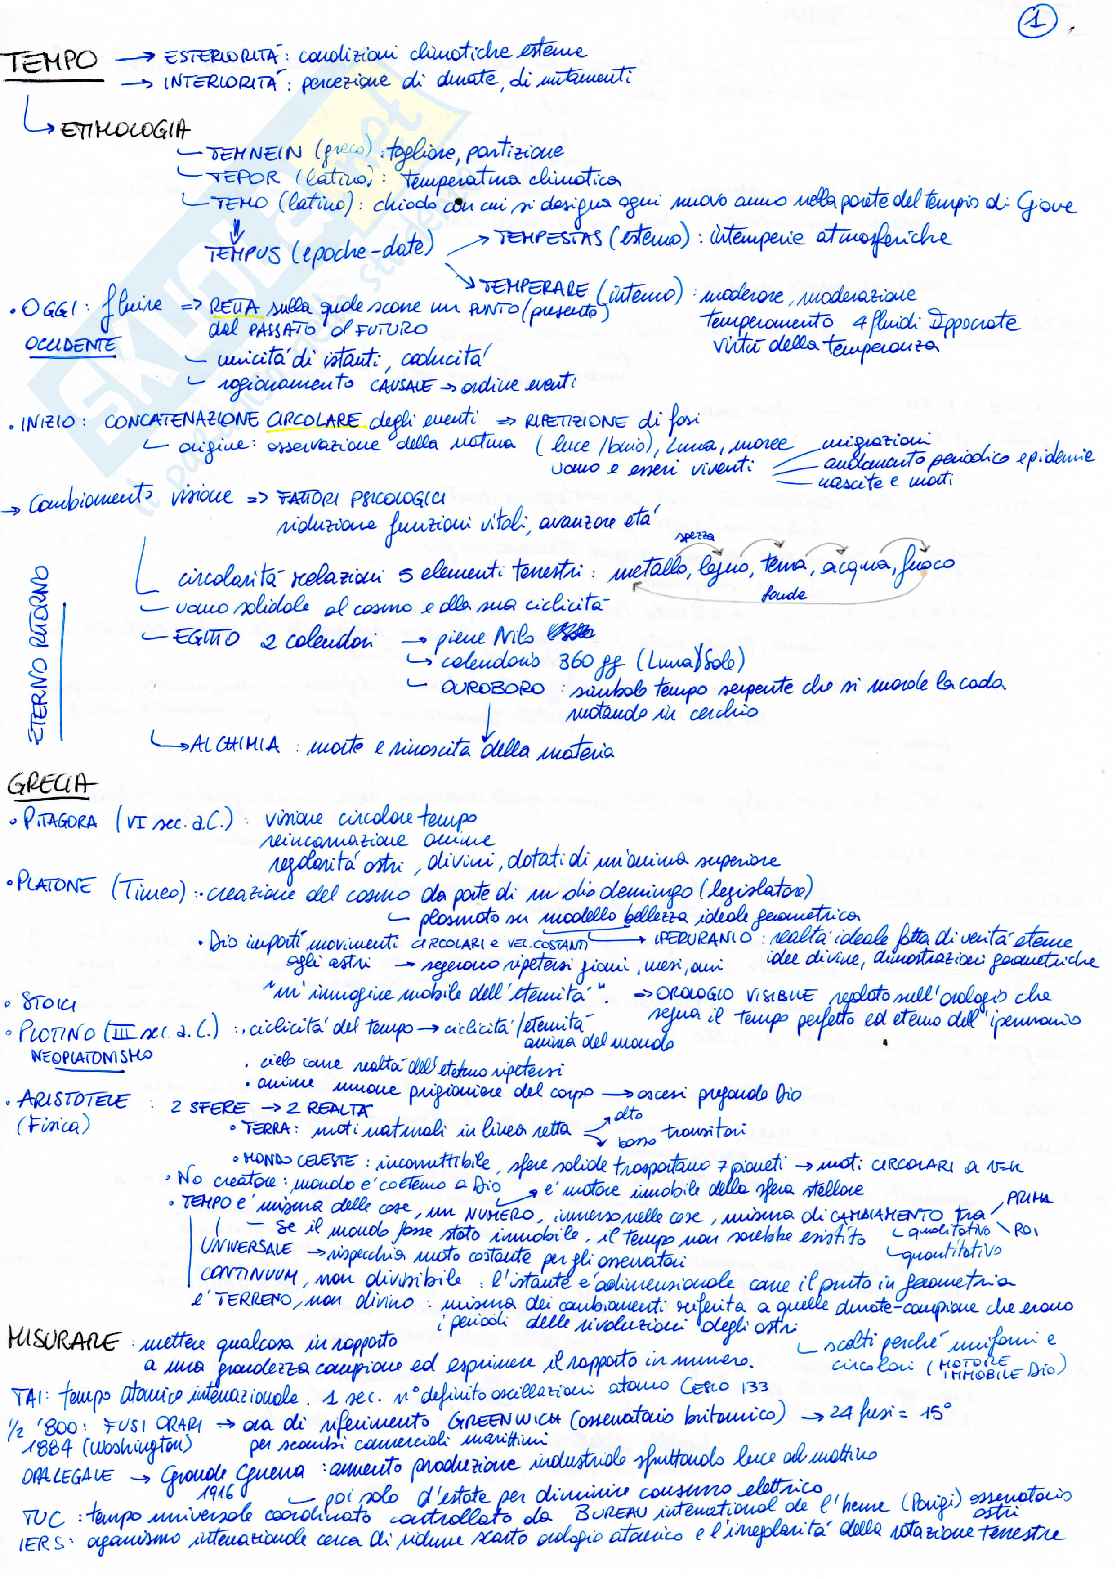 1
TEMPO → ESTERIORITÀ: condizioni climatiche esterne
→ INTERIORITÀ: percezione di durate, di mutamenti
↳ ETIMOLOGIA
– TEMNEIN (greco): tagliare, partizione
– TEPOR (latino): temperatura climatica
– TEMO (latino): chiodo con cui si designa ogni nuovo anno nella parete del tempio di Giove
TEMPUS (epoche-date) → TEMPESTAS (esterno): intemperie atmosferiche
→ TEMPERARE (interno): moderare, moderazione
temperamento 4 fluidi Ippocrate
virtù della temperanza
• OGGI: fluire ⇒ RETTA sulla quale scorre un PUNTO (presente)
OCCIDENTE dal PASSATO al FUTURO
– unicità di istanti, caducità
– ragionamento CAUSALE → ordine eventi
• INIZIO: CONCATENAZIONE CIRCOLARE degli eventi ⇒ RIPETIZIONE di fasi
– origine: osservazione della natura (luce/buio), Luna, maree
uomo e esseri viventi – migrazioni
– andamento periodico epidemie
– nascite e morti
→ Cambiamento visione ⇒ FATTORI PSICOLOGICI
riduzione funzioni vitali, avanzare età
spezza
circolarità relazioni 5 elementi terrestri: metallo, legno, terra, acqua, fuoco
fonde
– uomo solidale al cosmo e alla sua ciclicità
ETERNO RITORNO
– EGITTO 2 calendari → piene Nilo
→ calendario 360 gg (Luna/Sole)
– OUROBORO: simbolo tempo serpente che si morde la coda
ruotando in cerchio
↳ ALCHIMIA: morte e rinascita della materia
GRECIA
• PITAGORA (VI sec. a.C.): visione circolare tempo
reincarnazione anime
regolarità astri, divini, dotati di un'anima superiore
• PLATONE (Timeo): • creazione del cosmo da parte di un dio demiurgo (legislatore)
– plasmato su modello bellezza ideale geometrica
• Dio impartì movimenti CIRCOLARI e VEL. COSTANTI → IPERURANIO: realtà ideale fatta di verità eterne
agli astri → segnano ripetersi giorni, mesi, anni idee divine, dimostrazioni geometriche
"un'immagine mobile dell'eternità". ⇒ OROLOGIO VISIBILE regolato sull'orologio che
segna il tempo perfetto ed eterno dell'iperuranio
• STOICI
• PLOTINO (III sec. a.C.): • ciclicità del tempo → ciclicità/eternità
anima del mondo
NEOPLATONISMO
• cielo come realtà dell'eterno ripetersi
• anime umane prigioniere del corpo → ascesi pregando Dio
• ARISTOTELE: 2 SFERE → 2 REALTÀ
(Fisica) • TERRA: moti naturali in linea retta → alto
→ basso transitori
• MONDO CELESTE: incorruttibile, sfere solide trasportano 7 pianeti → moti CIRCOLARI a v=k
• No creatore: mondo è coeterno a Dio → è motore immobile della sfera stellare
• TEMPO è misura delle cose, un NUMERO, immerso nelle cose, misura di CAMBIAMENTO tra PRIMA
POI
– Se il mondo fosse stato immobile, il tempo non sarebbe esistito – qualitativo
– quantitativo
UNIVERSALE → rispecchia moto costante per gli osservatori
CONTINUUM, non divisibile: l'istante è adimensionale come il punto in geometria
è TERRENO, non divino: misura dei cambiamenti riferita a quelle durate-campione che erano
i periodi delle rivoluzioni degli astri
– scelti perché uniformi e
circolari (MOTORE IMMOBILE Dio)
MISURARE: mettere qualcosa in rapporto
a una grandezza campione ed esprimere il rapporto in numero.
TAI: tempo atomico internazionale. 1 sec. n° definito oscillazioni atomo CESIO 133
½ '800: FUSI ORARI → ora di riferimento GREENWICH (osservatorio britannico) → 24 fusi = 15°
1884 (Washington) per scambi commerciali marittimi
ORA LEGALE → Grande Guerra: aumento produzione industriale sfruttando luce del mattino
1916 – poi solo d'estate per diminuire consumo elettrico
TUC: tempo universale coordinato controllato da BUREAU international de l'heure (Parigi) osservatorio
astri
IERS: organismo internazionale cerca di ridurre scarto orologio atomico e l'irregolarità della rotazione terrestre